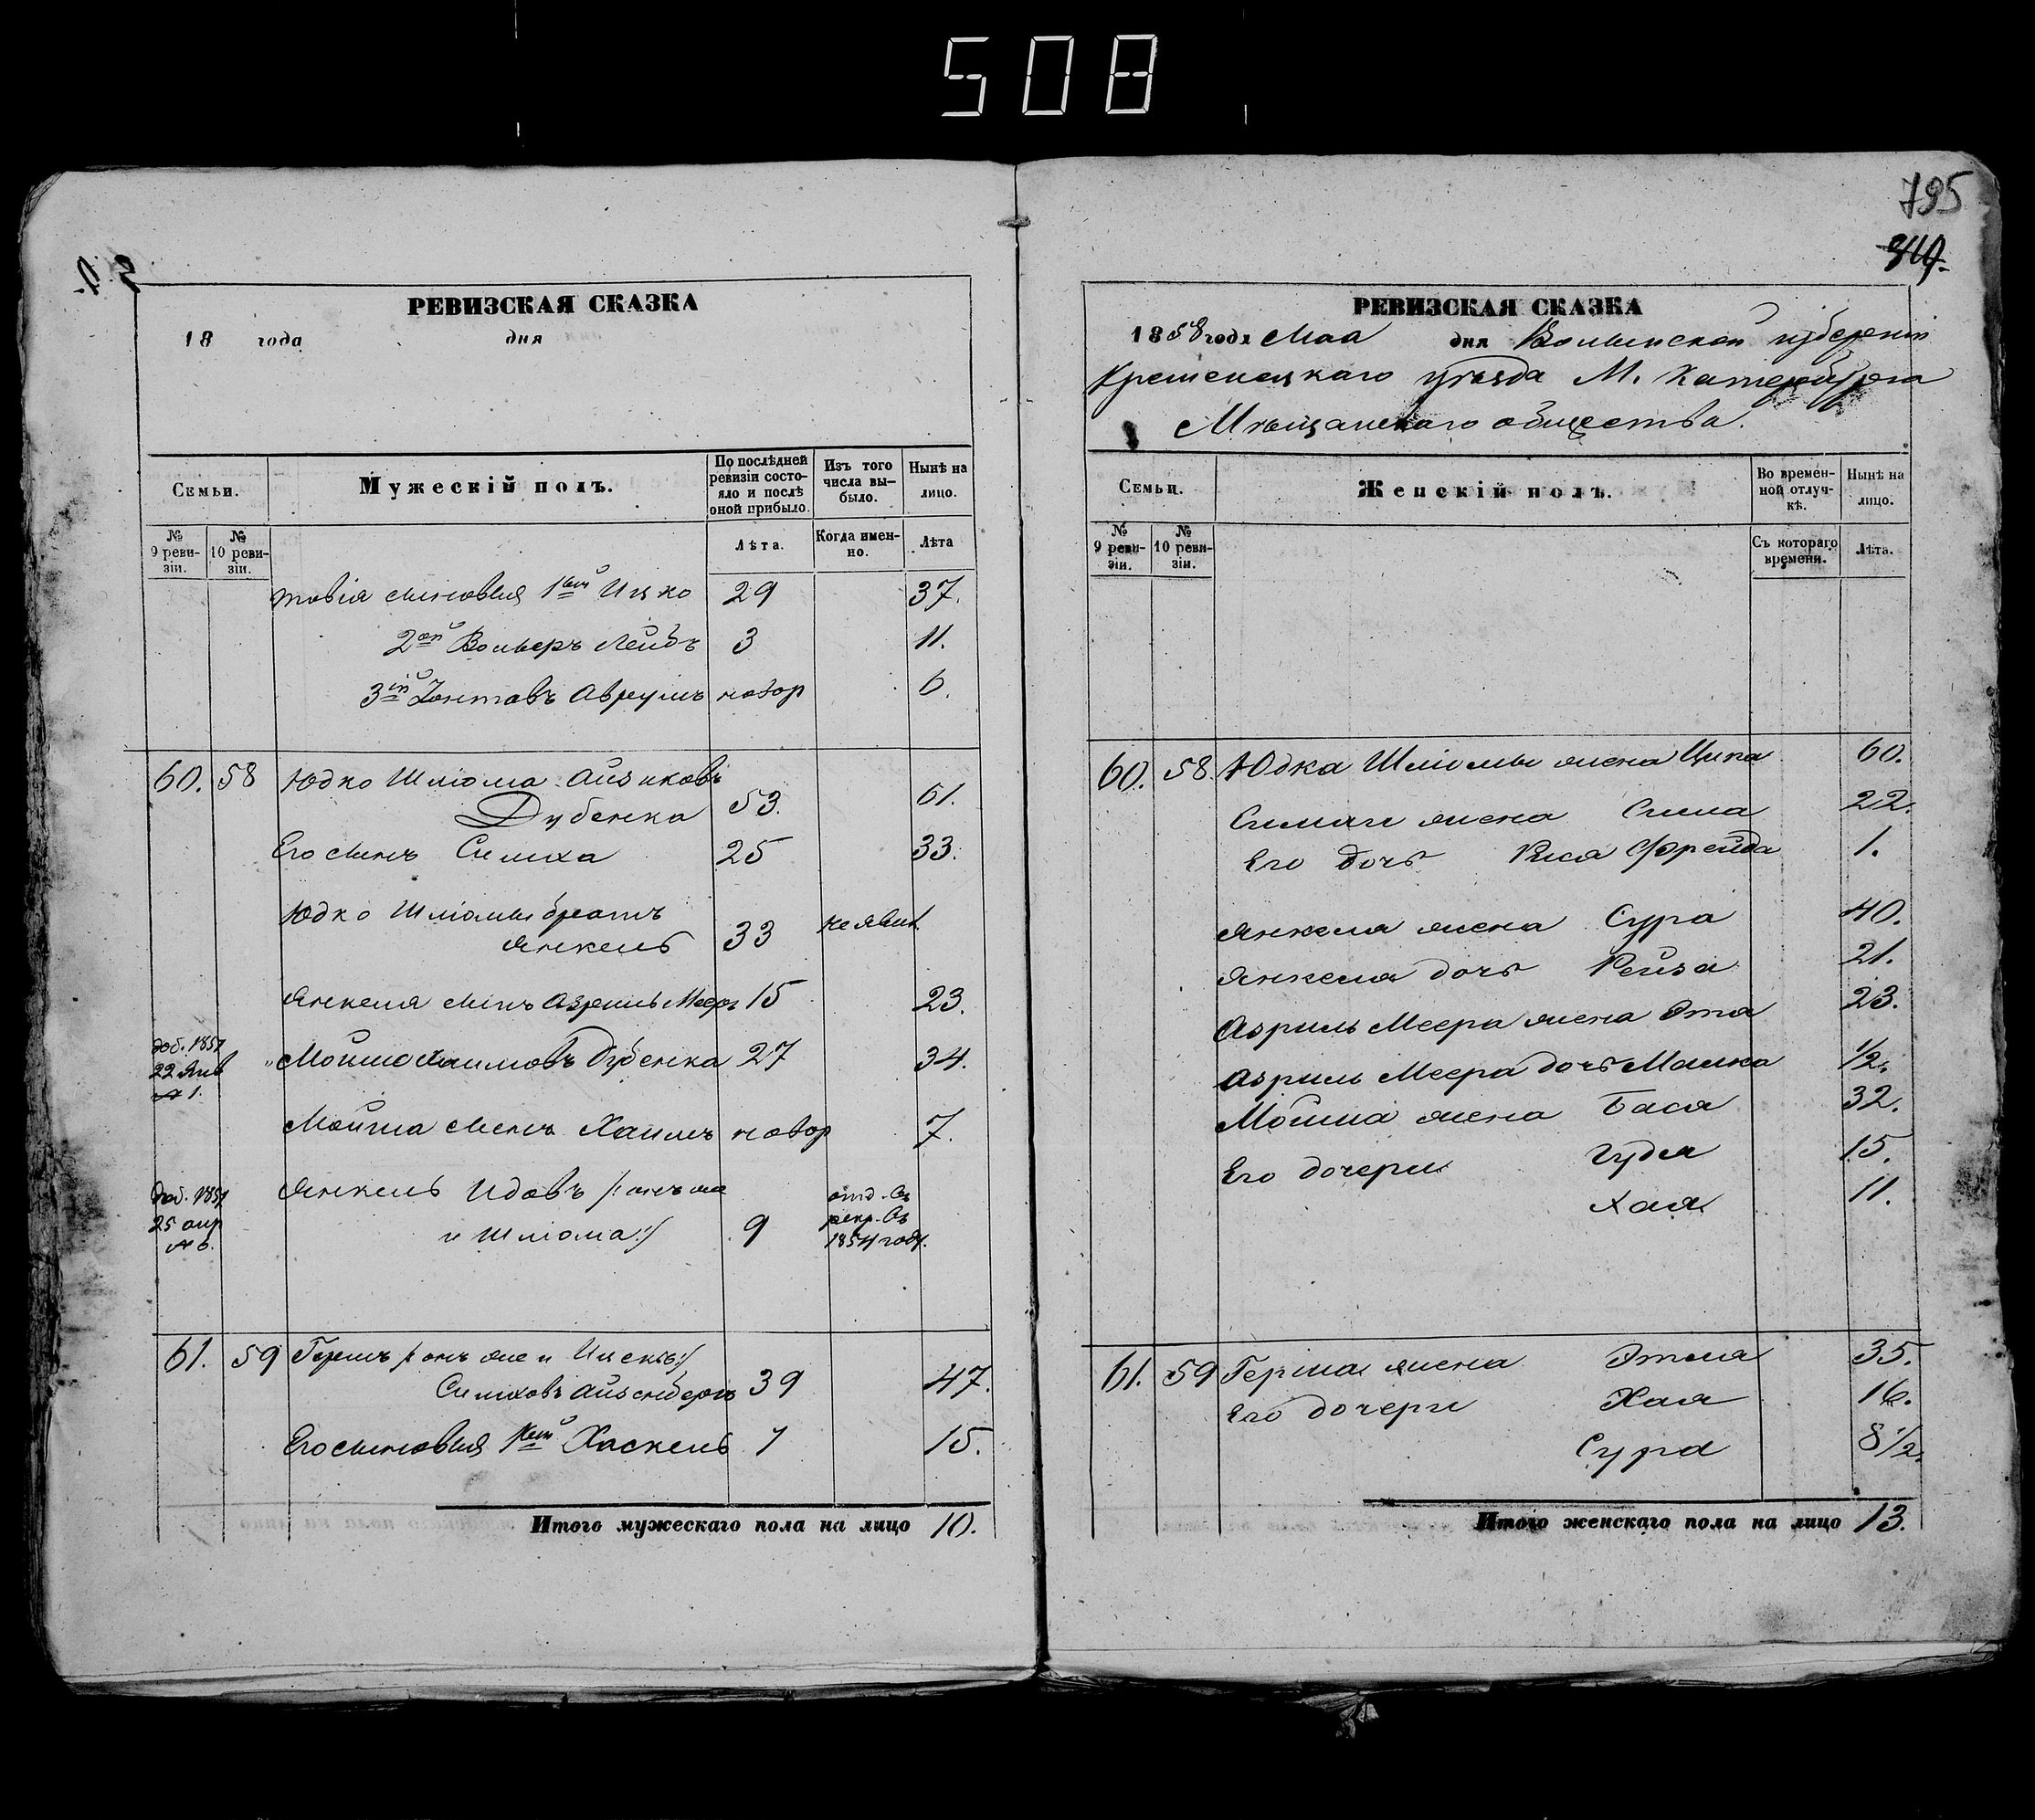 508
795
319.
РЕВИЗСКАЯ СКАЗКА
18 года дня
Семьи.
Мужескій полъ.
По послѣдней ревизіи состояло и послѣ оной прибыло.
Изъ того числа выбыло.
Нынѣ на лицо.
№ 9 ревизіи.
№ 10 ревизіи.
Лѣта.
Когда именно.
Лѣта
товія сыновья 1ый Ицко 29 37.
2ой Вольеръ Лейбъ 3 11.
3ій Іонтавъ Аврумъ новор 6.
60. 58 Юдко Шліома Айзиковъ
Дубенка 53. 61.
Его сынъ Симха 25 33.
Юдко Шліомы братъ
Янкель 33 не явил.
Янкеля сынъ Азриль Меер 15 23.
доб. 1851
22 Янв
№ 1.
Мойше Хаимовъ Дубенка 27 34.
Мойша сынъ Хаимъ новор 7.
доб. 1851
25 апр
№ 6.
Янкель Идовъ /: онъ же
и Шліома :/ 9
отд. въ
рекр. въ
1854 году.
61. 59 Гершъ /: онъ же и Ицекъ :/
Симховъ Айзенберг 39 47.
Его сыновья 1ый Хаскель 7 15.
Итого мужескаго пола на лицо 10.
РЕВИЗСКАЯ СКАЗКА
1858 года Мая дня Волынской губерніи
Кременецкаго уѣзда М. Катербурга
Мѣщанскаго общества.
Семьи.
Женскій полъ.
Во временной отлучкѣ.
Нынѣ на лицо.
№ 9 ревизіи.
№ 10 ревизіи.
Съ котораго времени.
Лѣта.
60. 58 Юдка Шліомы жена Ципа 60.
Симхи жена Сима 22.
Его дочь Рися Фрейда 1.
Янкеля жена Сура 40.
Янкеля дочь Рейза 21.
Азриль Меера жена Эта 23.
Азриль Меера дочь Малка 1/2.
Мойша жена Бася 32.
Его дочери Гудя 15.
Хая 11.
61. 59 Герша жена Этля 35.
Его дочери Хая 16.
Сура 8 1/2.
Итого женскаго пола на лицо 13.